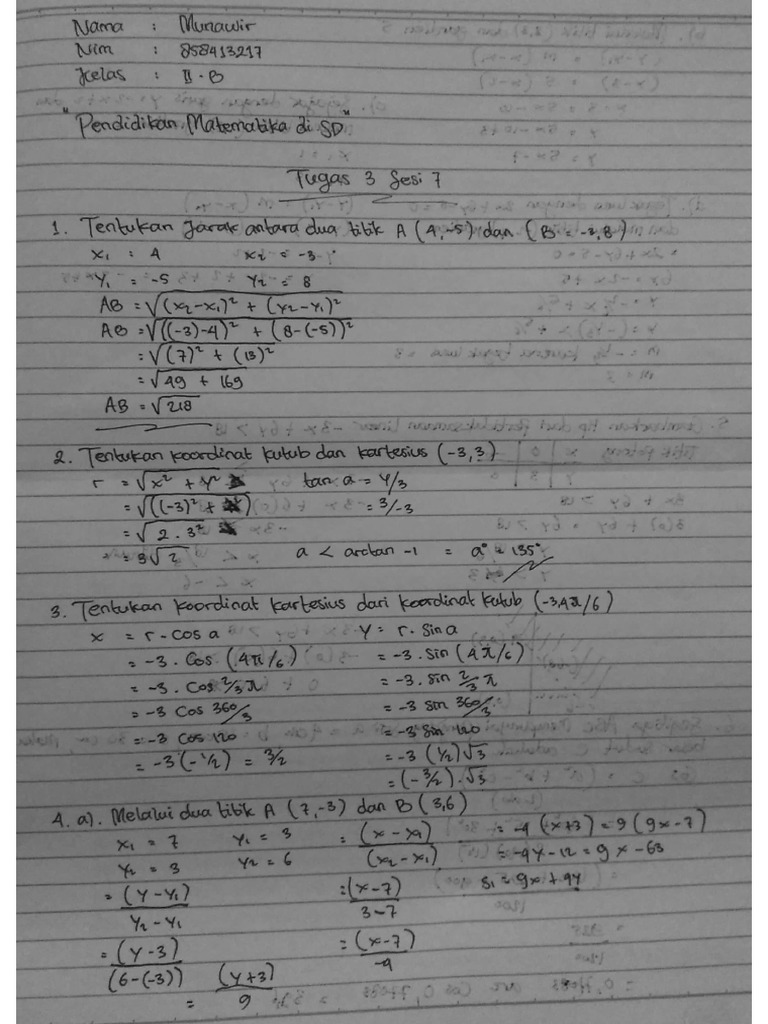 Nama : Munawir
Nim : 858413217
Kelas : II.B
"Pendidikan Matematika di SD"
Tugas 3 Sesi 7
1. Tentukan Jarak antara dua titik A (4,-5) dan (B = -3,8)
x₁ : 4 x₂ = -3
y₁ = -5 y₂ = 8
AB = √(x₂-x₁)² + (y₂-y₁)²
AB = √((-3)-4)² + (8-(-5))²
= √(7)² + (13)²
= √49 + 169
AB = √218
2. Tentukan koordinat kutub dan kartesius (-3,3)
r = √x² + y² tan a = y/3
= √((-3)² + = 3/-3
= √2.3²
= 3√2 a < arctan -1 = a° = 135°
3. Tentukan koordinat kartesius dari koordinat kutub (-3,4π/6)
x = r - cos a y = r. sin a
= -3. Cos (4π/6) = -3. sin (4π/6)
= -3. Cos 2/3 π = -3. sin 2/3 π
= -3 Cos 360/3 = -3 sin 360/3
= -3 cos 120 = -3 sin 120
= -3 (-1/2) = 3/2 = -3 (1/2)√3
= (-3/2).√3
4. a). Melalui dua titik A (7,-3) dan B (3,6)
x₁ = 7 y₁ = 3 = (x - x₁) = -4 (x+3) = 9 (9x-7)
x₂ = 3 y₂ = 6 (x₂ - x₁) = -4y-12 = 9x -63
= (y - y₁) = (x-7) 51 = 9x + 4y
y₂ - y₁ 3-7
= (y - 3) = (x-7)
(6-(-3)) (y+3) -4
= 9